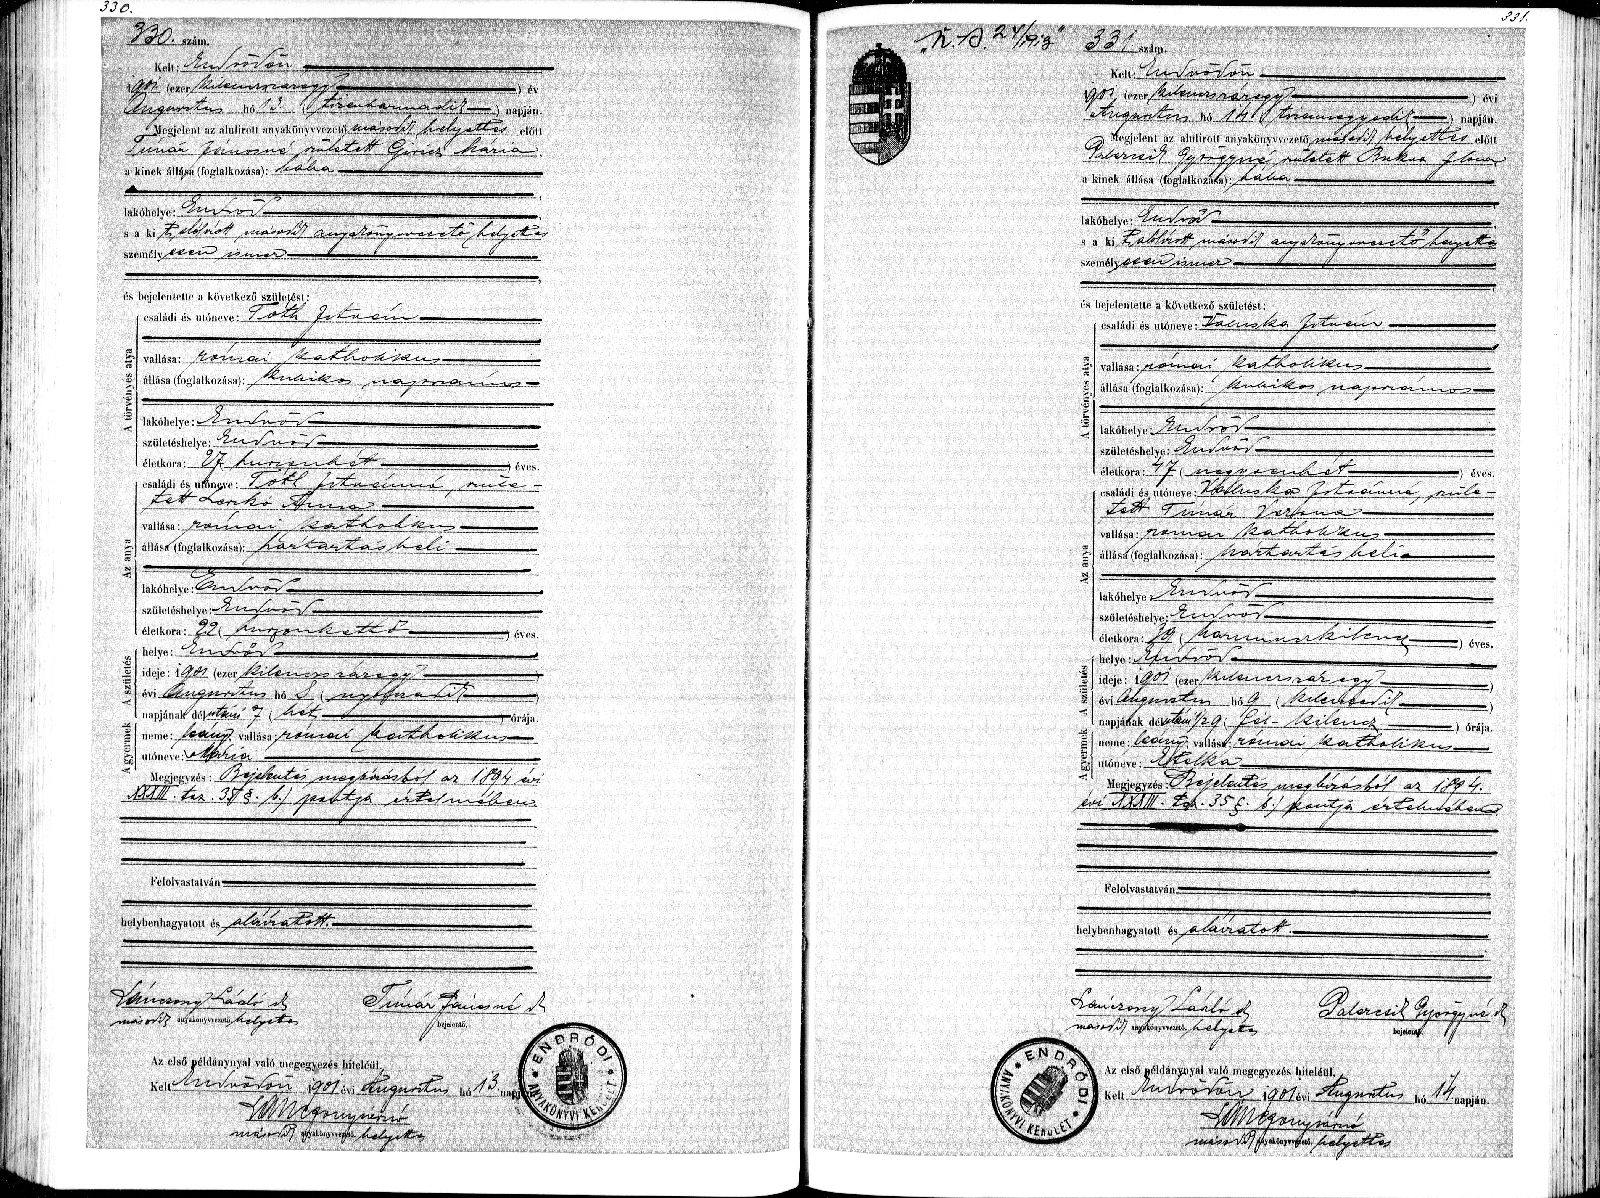 330.
330. szám.
Kelt: Endrődön
1901 (ezer kilenczszázegy) év
Augusztus hó 13 (tizenharmadik) napján.
Megjelent az alulirott anyakönyvvezető második helyettes előtt
Tímár Jánosné született Giricz Mária
a kinek állása (foglalkozása): bába
lakóhelye: Endrőd
s a ki t, alólírott második anyakönyvvezető helyettes
személyesen ismer
és bejelentette a következő születést:
A törvényes atya
családi és utóneve: Tóth István
vallása: római katholikus
állása (foglalkozása): kubikos napszámos
lakóhelye: Endrőd
születéshelye: Endrőd
életkora: 27 huszonhét) éves.
Az anya
családi és utóneve: Tóth Istvánné, szüle-
tett Anna
vallása: római katholikus
állása (foglalkozása): háztartásbeli
lakóhelye: Endrőd
születéshelye: Endrőd
életkora: 22 (huszonkettő) éves.
A születés
helye: Endrőd
ideje: 1901 (ezer kilenczszázegy)
évi Augusztus hó 8 (nyolczadik)
napjának dél utáni 7 (hét) órája.
A gyermek
neme: leány vallása: római katholikus
utóneve: Mária
Megjegyzés: Bejelentés megbízásból az 1894 évi
XXXIII. tcz. 35 §. b.) pontja értelmében
Felolvastatván
helybenhagyatott és aláíratott.
László
Tímár Jánosné
második anyakönyvvezető, helyettes
bejelentő.
Az első példánynyal való megegyezés hiteléül.
Kelt Endrődön 1901 évi Augusztus hó 13 napján
második anyakönyvvezető, helyettes
ENDRŐDI
ANYAKÖNYVI KERÜLET
331.
331 szám.
Kelt: Endrődön
1901 (ezer kilenczszázegy) évi
Augusztus hó 14 (tizennegyedik) napján.
Megjelent az alulirott anyakönyvvezető második helyettes előtt
Palercsik Györgyné született Ilona
a kinek állása (foglalkozása): bába
lakóhelye: Endrőd
s a ki t, alólírott második anyakönyvvezető helyettes
személyesen ismer
és bejelentette a következő születést:
A törvényes atya
családi és utóneve: Valuska István
vallása: római katholikus
állása (foglalkozása): kubikos napszámos
lakóhelye: Endrőd
születéshelye: Endrőd
életkora: 47 (negyvenhét) éves.
Az anya
családi és utóneve: Valuska Istvánné, szüle-
tett Tímár Verona
vallása: római katholikus
állása (foglalkozása): háztartásbeli
lakóhelye: Endrőd
születéshelye: Endrőd
életkora: 39 (harminczkilencz) éves.
A születés
helye: Endrőd
ideje: 1901 (ezer kilenczszázegy)
évi Augusztus hó 9 (kilenczedik)
napjának dél utáni 1/2 9 (fél-kilencz) órája.
A gyermek
neme: leány vallása: római katholikus
utóneve: Etelka
Megjegyzés: Bejelentés megbízásból az 1894.
évi XXXIII. tcz. 35 §. b.) pontja értelmében
Felolvastatván
helybenhagyatott és aláíratott.
László
Palercsik Györgyné
második anyakönyvvezető, helyettes
bejelentő.
Az első példánynyal való megegyezés hiteléül.
Kelt Endrődön 1901 évi Augusztus hó 14 napján.
második anyakönyvvezető, helyettes
ENDRŐDI
ANYAKÖNYVI KERÜLET